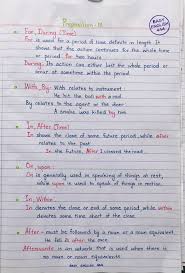 Preposition - 18
EASY ENGLISH 444
For, During (Time)
For is used for a period of time definite in length. It
shows that the action continues for the whole time
or period. for two hours
During: Its action can either last the whole period or
occur at sometime within the period.
With, By: With relates to instrument
He hit the ball with a rod
By relates to the agent or the doer
A snake was killed by him
In, After (Time)
In shows the close of some future period, while after
relates to the past or future
In the future, After I crossed the road
On, upon:
On is generally used in speaking of things at rest,
while upon is used to speak of things in motion.
In, Within:
In denotes the close or end of some period while within
denotes some time short of the close.
After - must be followed by a noun or a noun equivalent.
He fell ill after the race.
Afterwards is an adverb that is used when there is
no noun or noun equivalents.
EASY ENGLISH 444